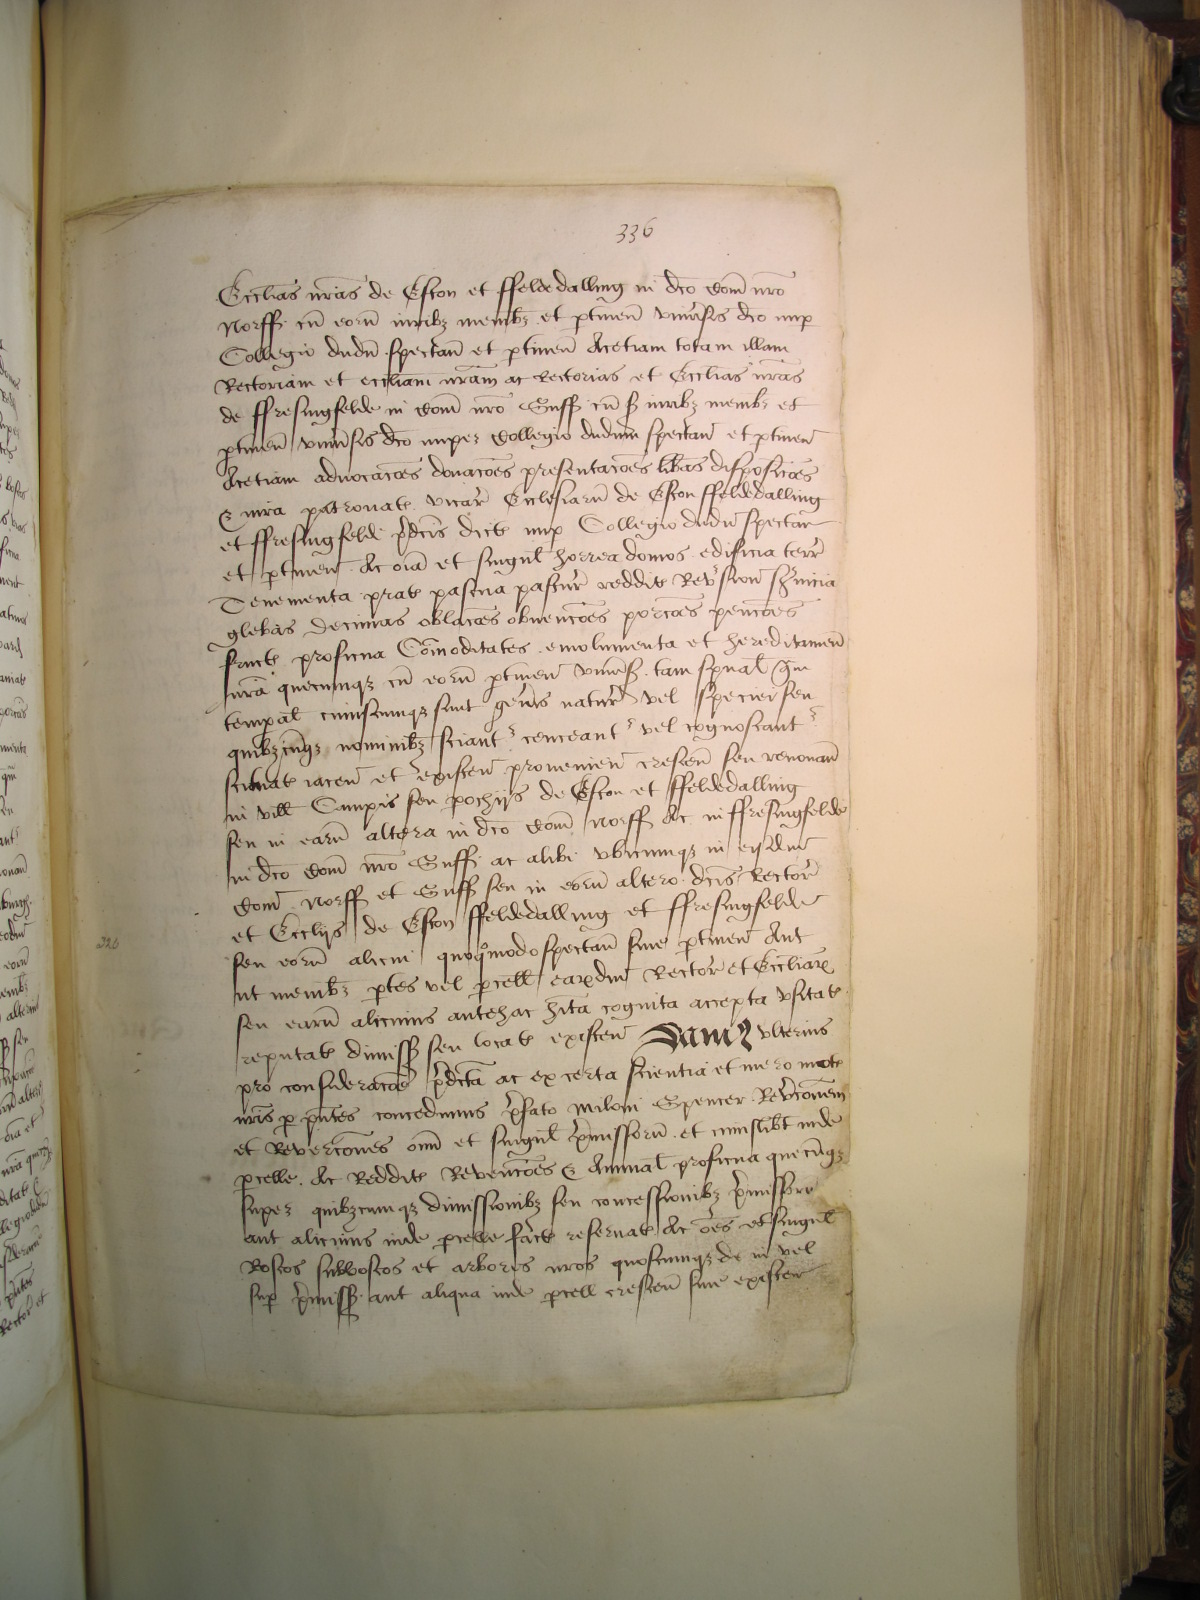 336
Eccliās nrās de Eston et ffeldedalling in dco Com̄ nrō
Norff cū eorū iuribz membz et ptineñ vniūsis dco nup
Collegio dudū spectañ et ptineñ Acetiam totam illam
Rectoriam et eccliam nrām ac Rectorias et Eccliās nrās
de ffresingfelde in Com̄ nrō Suff cū iuribz membz et
ptineñ vniūsis dco nuper Collegio dudum spectañ et ptineñ
Acetiam advocacōes donacōes presentacōes libas disposicōes
& iura patronat vicar Ecclesiarū de Eston ffeldedalling
et ffresingfelde p̄dcis dict nup Collegio dudū spectañ
et ptineñ Ac oīa et singul horrea domos edificia terr̄
Tenementa prat pascua pastur reddit Rev̄sioñ s̄uicia
glebas decimas oblacōes obuencōes porcōes pencōes
fruct proficua Cōmoditates emolumenta et hereditameñ
nrā quecumqz cū eorū ptineñ vniūs tam spūal qm
tempal cuiuscumqz sint geñis natur̄ vel speciei seu
quibzcūqz nominibz sciant censeant vel cognoscant
scituat iaceñ et existeñ provenieñ cresceñ seu renouañ
in vill Campis seu pochijs de Eston et ffeldedalling
seu in earū altera in dco Com̄ Norff Ac in ffresingfelde
in dco Com̄ nrō Suff ac alibi vbicumqz in eisdm
Com̄ Norff et Suff seu in eorū altero dcis Rector
et Ecclijs de Eston ffeldedalling et ffresingfelde
seu eorū alicui quoqomodo spectañ siue ptineñ Aut
ut membz ptes vel pcell earzdm Rector et Eccliarz
seu earū alicuius antehac hita cognita accepta vsitat
reputat dimiss seu locat existeñ Damz vlterius
pro consideracōe p̄dcta ac ex certa scientia et mero motu
nris p pntes concedimus p̄fato Miloni Spencer Rev̄conem
et Revercōnes om̄ et singul p̄missorū et cuiuslibt inde
pcelle Ac Reddit Reuencōes & Annual proficua quecūqz
super quibzcumqz dimissionibz seu concessionibz p̄missorū
aut alicuius inde pcelle fact reseruat Ac oēs et singul
Boscos subboscos et arbores nros quoscumqz de in vel
sup p̄miss aut aliqua inde pcell cresceñ siue existeñ
326